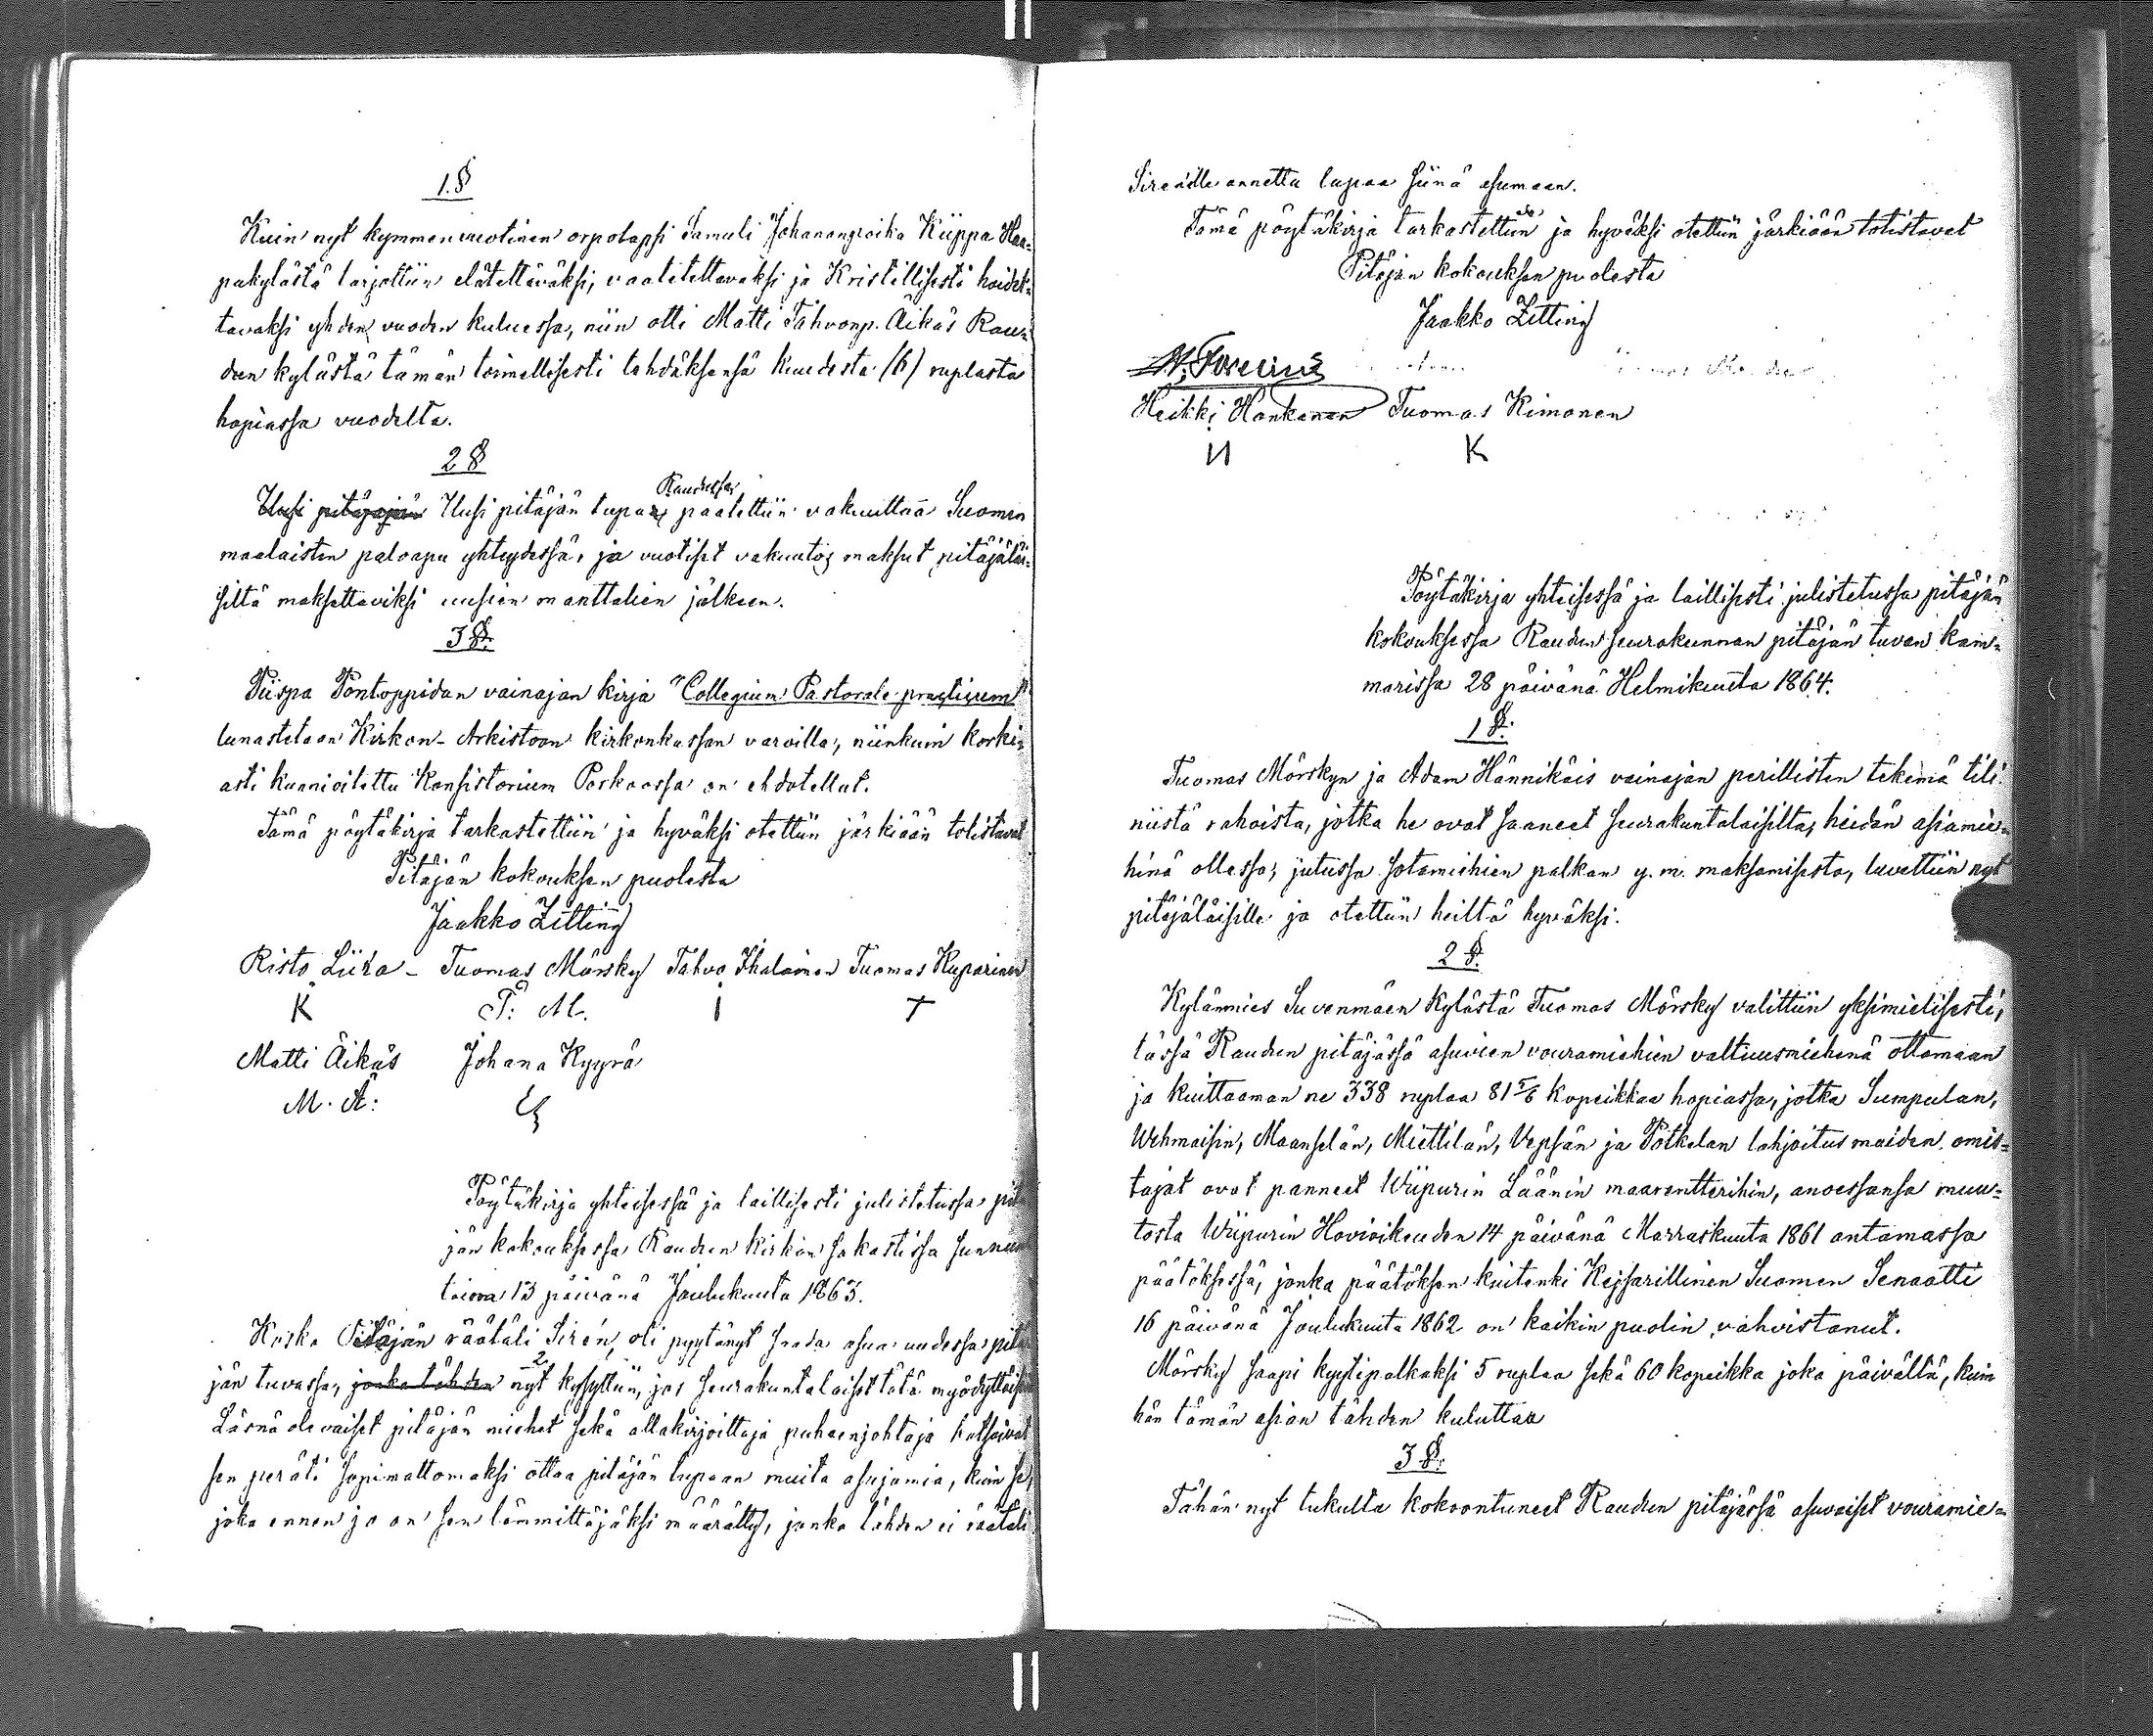 1.§
Kuin nyt kymmenvuotinen orpolapsi Samuli Johananpoika Kiippa Haa-
pakylästä tarjottiin elätettäväksi, vaatetettavaksi ja Kristillisesti hoidet-
tavaksi yhden vuoden kuluessa, niin otti Matti Tahvonp. Äikäs Rau-
dun kylästä tämän toimellisesti tehdäksensä kuudesta (6) ruplasta
hopiassa vuodelta.
2 §
Uusi pitäjäjän Uusi pitäjän tupa Raudussa päätettiin vakuuttaa Suomen
maalaisten paloapu yhteydessä, ja vuotiset vakuutos maksut pitäjäläi-
siltä maksettaviksi uusien manttalien jälkeen.
3 §.
Piispa Pontoppidan vainajan kirja "Collegium Pastorale practicum"
lunastetaan Kirkon-Arkistoon kirkonkassan varoilla, niinkuin korki-
asti kunnioitettu Konsistorium Porkoossa on ehdotellut.
Tämä pöytäkirja tarkastettiin ja hyväksi otettiin järkiään totistavat
Pitäjän kokouksen puolesta
Jaakko Zitting
Risto Liira - Tuomas Mörsky Tahvo Ihalainen Tuomas Kuparinen
K T: M. I T
Matti Äikäs Johana Kyyrö
M. Ä:
Pöytäkirja yhteisessä ja laillisesti julistetussa pitä
jän kokouksessa Raudun kirkon sakastissa sunnun
taina 13 päivänä Joulukuuta 1863.
Koska Pitäjän räätäli Sirén, oli pyytänyt saada asua uudessa pitä
jän tuvassa, jonka tähden nyt kysyttiin, jos seurakuntalaiset tätä myödyttäisi
Läsnä olevaiset pitäjän miehet sekä allakirjoittaja puheenjohtaja katsoivat
sen peräti sopimattomaksi ottaa pitäjän tupaan muita asujamia, kuin se,
joka ennen jo on sen lämmittäjäksi määrätty, jonka tähden ei räätäli
Sirenille annettu lupaa siinä asumaan.
Tämä pöytäkirja tarkastettiin ja hyväksi otettiin järkiään totistavat
Pitäjän kokouksen puolesta
Jaakko Zitting
Heikki Hankanen Tuomas Kimonen
И K
Pöytäkirja yhteisessä ja laillisesti julistetussa pitäjän
kokouksessa Raudun seurakunnan pitäjän tuvan kam-
marissa 28 päivänä Helmikuuta 1864.
1 §.
Tuomas Mörskyn ja Adam Hännikäis vainajan perillisten tekemä tili
niistä rahoista, jotka he ovat saaneet seurakuntalaisilta, heidän asiamie-
hinä ollessa, jutussa sotamiehien palkan y. m. maksamisesta, luvettiin nyt
pitäjäläisille ja otettiin heiltä hyväksi.
2 §.
Kylänmies Suvenmäen kylästä Tuomas Mörsky valittiin yksimielisesti,
tässä Raudun pitäjässä asuvien vouramiehien valtuusmiehenä ottamaan
ja kuittaaman ne 338 ruplaa 81 5/6 kopeikkaa hopiassa, jotka Sumpulan,
Wehmaisin, Maanselän, Miettilän, Vepsän ja Potkelan lahjoitus maiden omis-
tajat ovat panneet Wiipurin Läänin maarentterihin, anoessansa muu-
tosta Wiipurin Hovioikeuden 14 päivänä Marraskuuta 1861 antamassa
päätöksessä, jonka päätöksen kuitenki Kejsarillinen Suomen Senaatti
16 päivänä Joulukuuta 1862 on kaikin puolin vahvistanut.
Mörsky saapi kyytipalkaksi 5 ruplaa sekä 60 kopeikka joka päivältä, kuin
hän tämän asian tähden kuluttaa
3 §.
Tähän nyt tukulta kokoontuneet Raudun pitäjässä asuvaiset vouramie-